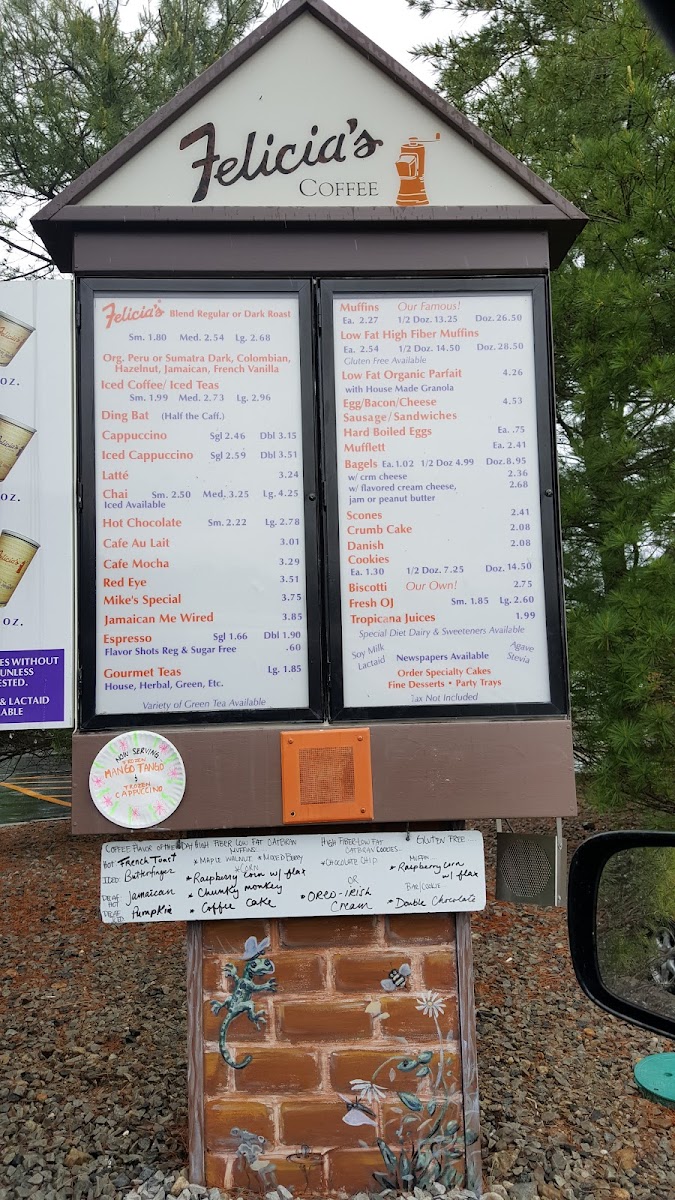 Felicia's
COFFEE
Felicia's Blend Regular or Dark Roast
Sm. 1.80 Med. 2.54 Lg. 2.68
Org. Peru or Sumatra Dark, Colombian,
Hazelnut, Jamaican, French Vanilla
Iced Coffee/ Iced Teas
Sm. 1.99 Med. 2.73 Lg. 2.96
Ding Bat (Half the Caff.)
Cappuccino Sgl 2.46 Dbl 3.15
Iced Cappuccino Sgl 2.59 Dbl 3.51
Latté 3.24
Chai Sm. 2.50 Med. 3.25 Lg. 4.25
Iced Available
Hot Chocolate Sm. 2.22 Lg. 2.78
Cafe Au Lait 3.01
Cafe Mocha 3.29
Red Eye 3.51
Mike's Special 3.75
Jamaican Me Wired 3.85
Espresso Sgl 1.66 Dbl 1.90
Flavor Shots Reg & Sugar Free .60
Gourmet Teas Lg. 1.85
House, Herbal, Green, Etc.
Variety of Green Tea Available
Muffins Our Famous!
Ea. 2.27 1/2 Doz. 13.25 Doz. 26.50
Low Fat High Fiber Muffins
Ea. 2.54 1/2 Doz. 14.50 Doz. 28.50
Gluten Free Available
Low Fat Organic Parfait 4.26
with House Made Granola
Egg/Bacon/Cheese 4.53
Sausage/Sandwiches
Hard Boiled Eggs Ea. .75
Mufflett Ea. 2.41
Bagels Ea. 1.02 1/2 Doz 4.99 Doz. 8.95
w/ crm cheese 2.36
w/ flavored cream cheese, 2.68
jam or peanut butter
Scones 2.41
Crumb Cake 2.08
Danish 2.08
Cookies
Ea. 1.30 1/2 Doz. 7.25 Doz. 14.50
Biscotti Our Own! 2.75
Fresh OJ Sm. 1.85 Lg. 2.60
Tropicana Juices 1.99
Special Diet Dairy & Sweeteners Available
Soy Milk
Lactaid
Newspapers Available
Agave
Stevia
Order Specialty Cakes
Fine Desserts • Party Trays
Tax Not Included
OZ.
OZ.
OZ.
ES WITHOUT
UNLESS
ESTED.
& LACTAID
ABLE
NOW SERVING
FROZEN
MANGO TANGO
&
FROZEN
CAPPUCCINO
COFFEE FLAVOR OF THE DAY
HOT French Toast
ICED: Butterfinger
DECAF HOT Jamaican
DECAF ICED Pumpkin
HIGH FIBER LOW FAT OATBRAN
MUFFINS
* MAPLE WALNUT * MIXED BERRY
* Raspberry Corn w/ flax
* Chunky monkey
* Coffee Cake
HIGH FIBER LOW FAT
OATBRAN COOKIES
* CHOCOLATE CHIP
OR
* OREO-IRISH
Cream
GLUTEN FREE
MUFFIN
* Raspberry Corn
w/ flax
BAR/COOKIE
* Double Chocolate